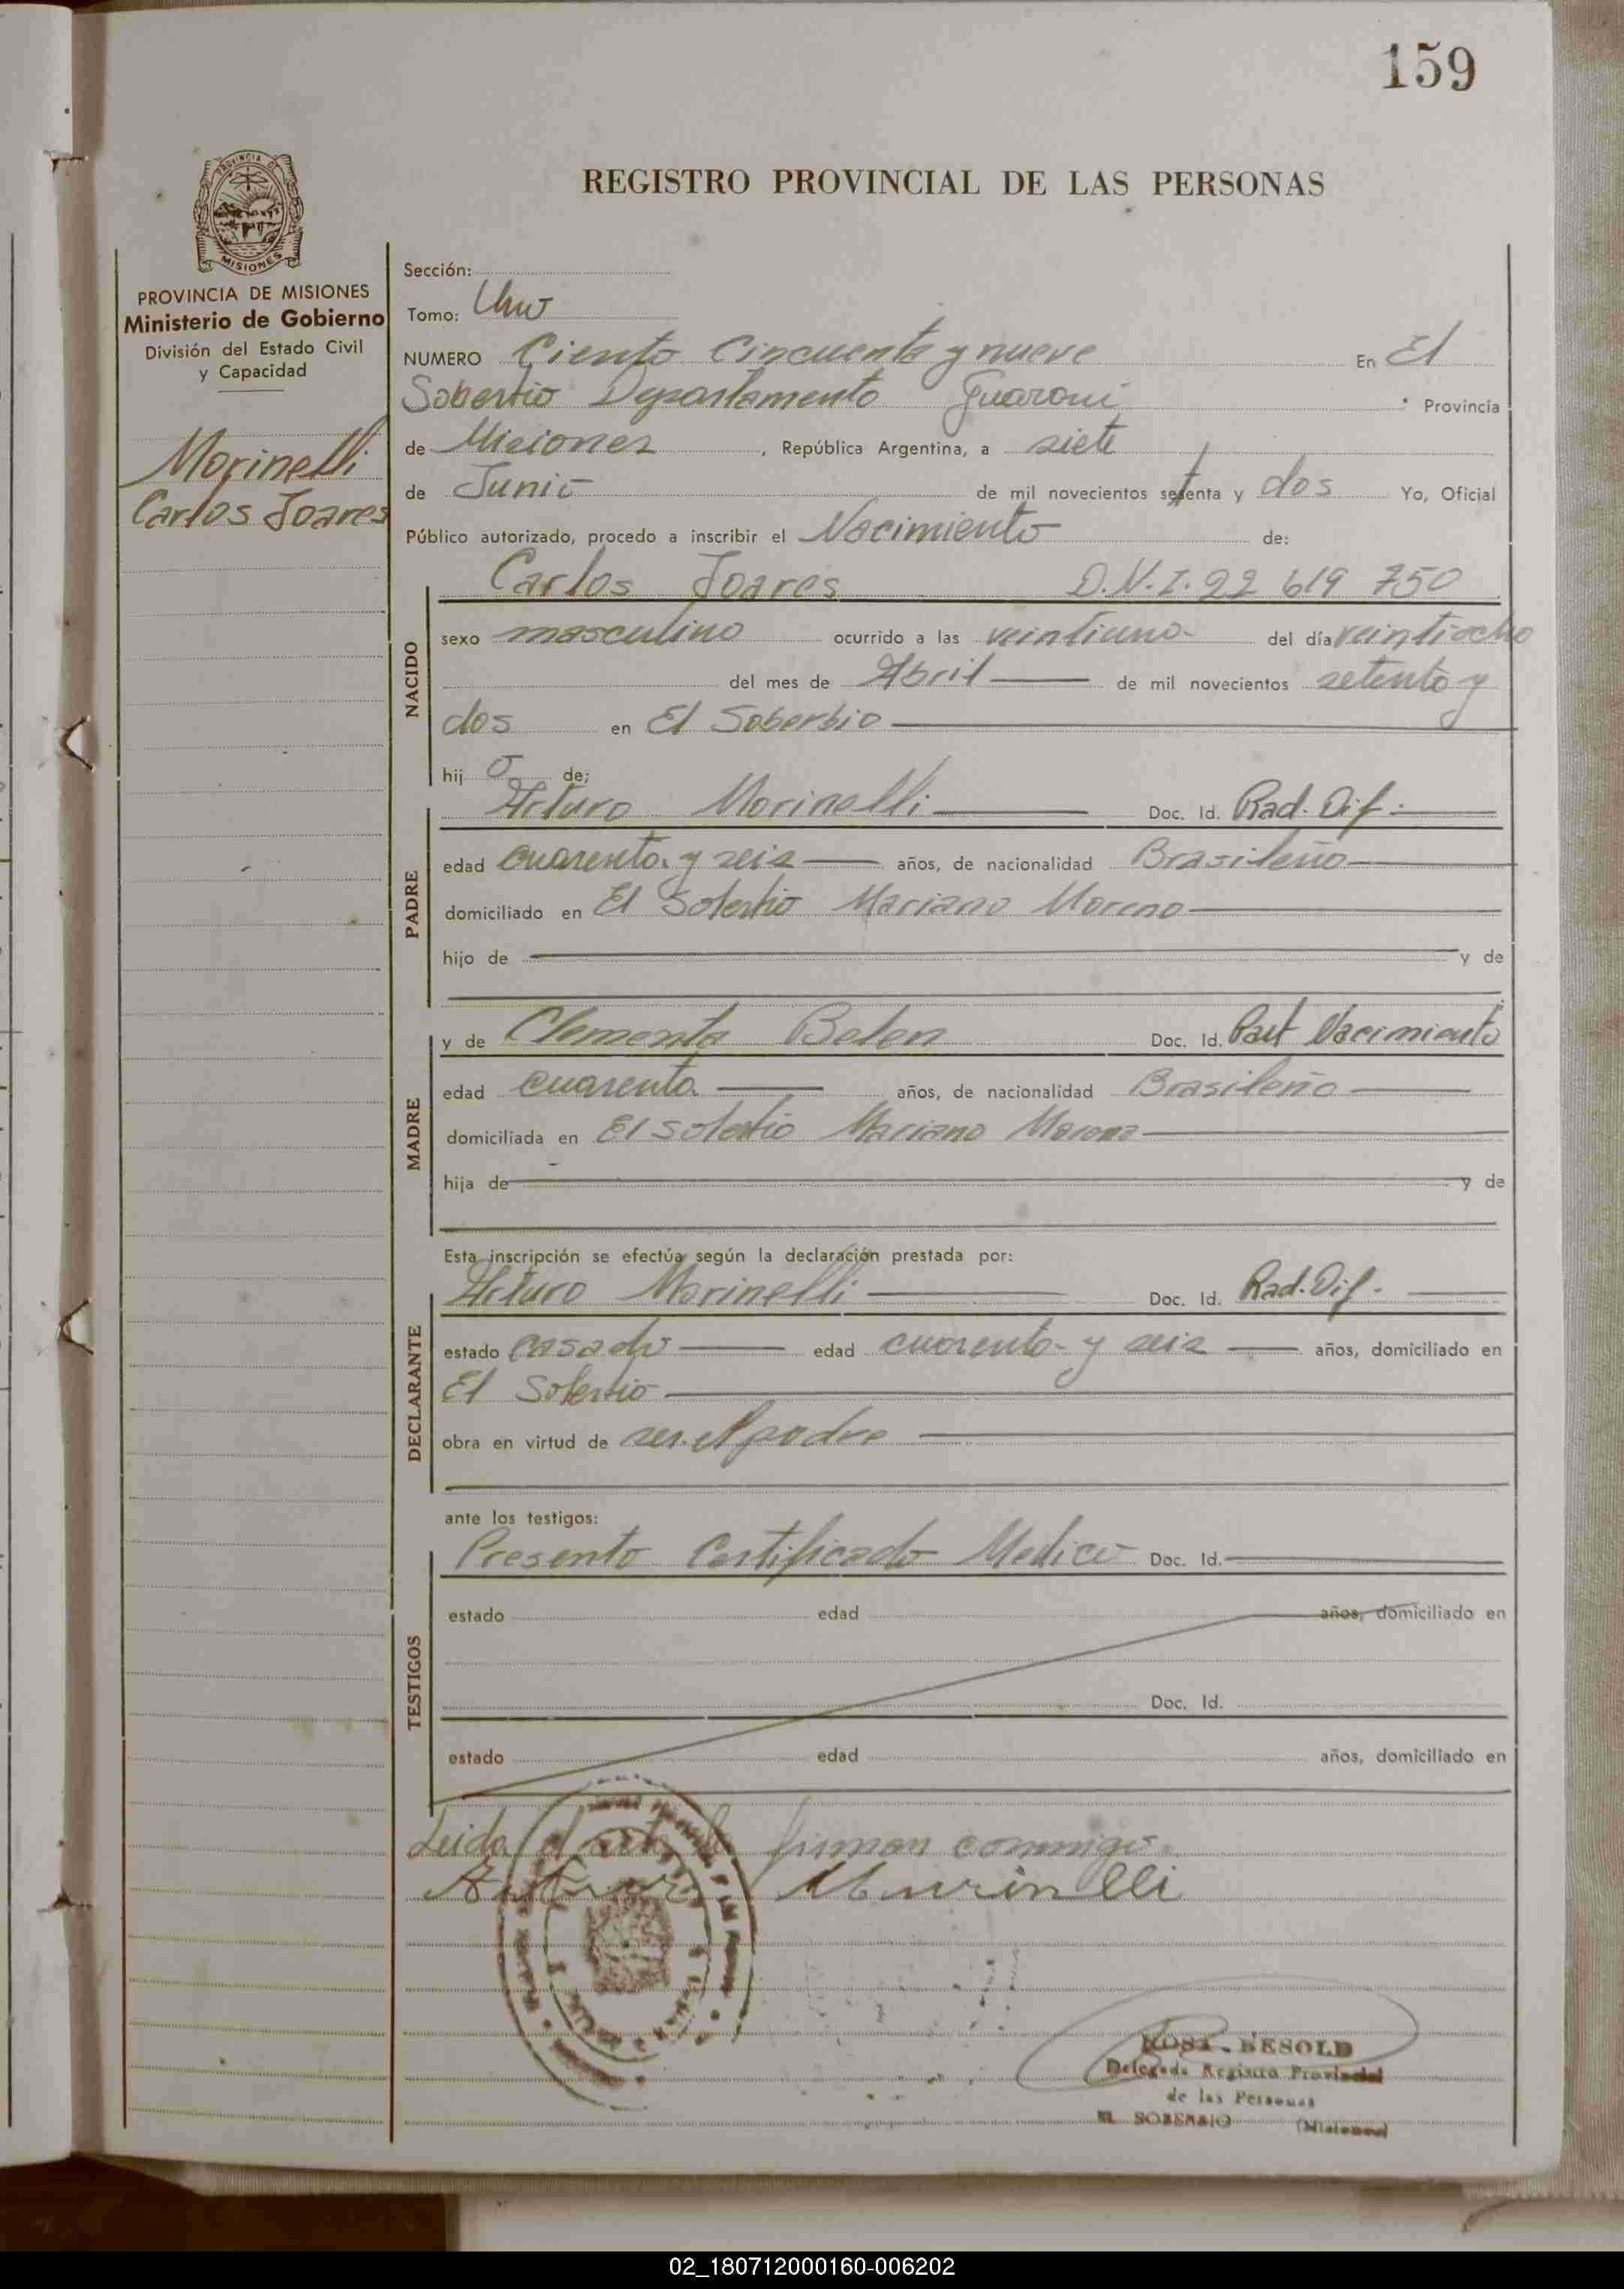 159
REGISTRO PROVINCIAL DE LAS PERSONAS
PROVINCIA DE
MISIONES
PROVINCIA DE MISIONES
Ministerio de Gobierno
División del Estado Civil
y Capacidad
Morinelli
Carlos Joares
Sección:
Tomo: Uno
NUMERO Ciento Cincuenta y nueve En El
Soberbio Departamento Guarani Provincia
de Misiones, República Argentina, a siete
de Junio de mil novecientos setenta y dos Yo, Oficial
Público autorizado, procedo a inscribir el Nacimiento de:
Carlos Joares D.N.I. 22 619 750
NACIDO
sexo masculino ocurrido a las veintiuno del día veintiocho
del mes de Abril de mil novecientos setenta y
dos en El Soberbio
hij o de:
PADRE
Arturo Morinelli Doc. Id. Rad. Dif.
edad cuarenta y seis años, de nacionalidad Brasileño
domiciliado en El Soberbio Mariano Moreno
hijo de y de
MADRE
y de Clementa Belen Doc. Id. Part Nacimiento
edad cuarenta años, de nacionalidad Brasileño
domiciliada en El Soberbio Mariano Moreno
hija de y de
Esta inscripción se efectúa según la declaración prestada por:
DECLARANTE
Arturo Morinelli Doc. Id. Rad. Dif.
estado casado edad cuarenta y seis años, domiciliado en
El Soberbio
obra en virtud de ser el padre
ante los testigos:
TESTIGOS
Presento Certificado Medico Doc. Id.
estado edad años, domiciliado en
Doc. Id.
estado edad años, domiciliado en
Leida el acta firman conmigo.
Arturo Murinelli
ROSA BESOLD
Delegada Registro Provincial
de las Personas
EL SOBERBIO (Misiones)
02_180712000160-006202